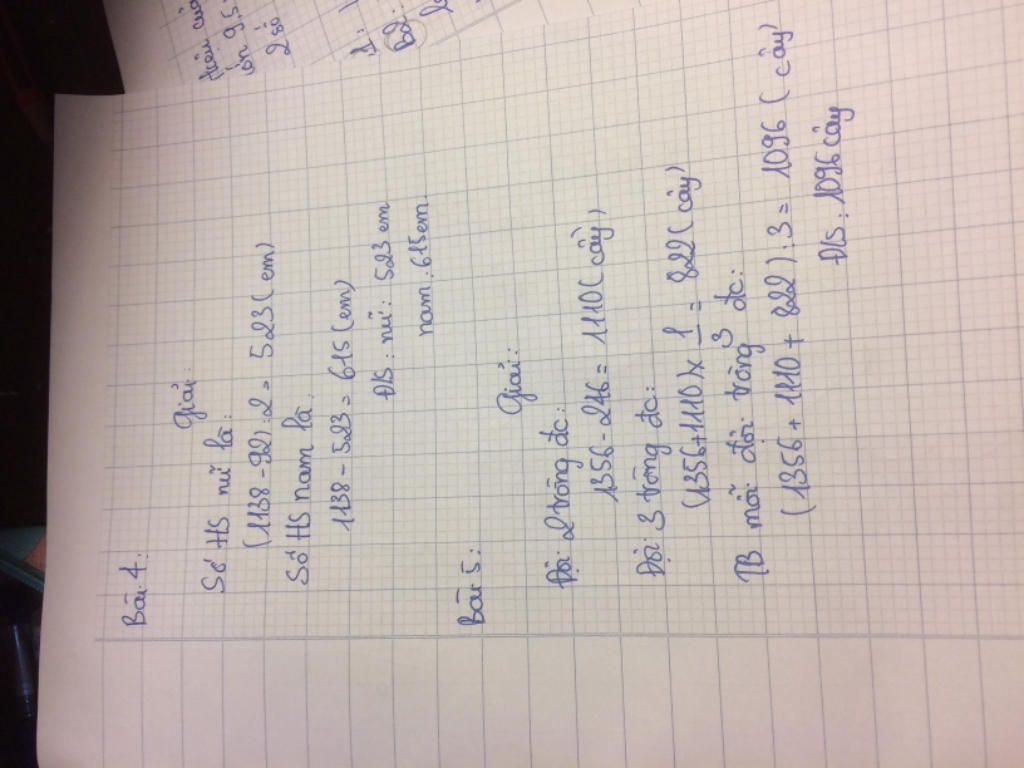 tiên của
ơn 9,5
2 số
1:
Bài 4:
Giải:
Số HS nữ là:
(1138-92):2 = 523 (em)
Số HS nam là:
1138-523 = 615 (em)
ĐS: nữ: 523 em
nam: 615 em.
Bài 5:
Giải:
Đội 2 trồng đc:
1356-246 = 1110 (cây)
Đội 3 trồng đc:
(1356+1110) x 1/3 = 822 (cây)
TB mỗi đội trồng đc:
(1356+1110+822):3 = 1096 (cây)
ĐS: 1096 cây